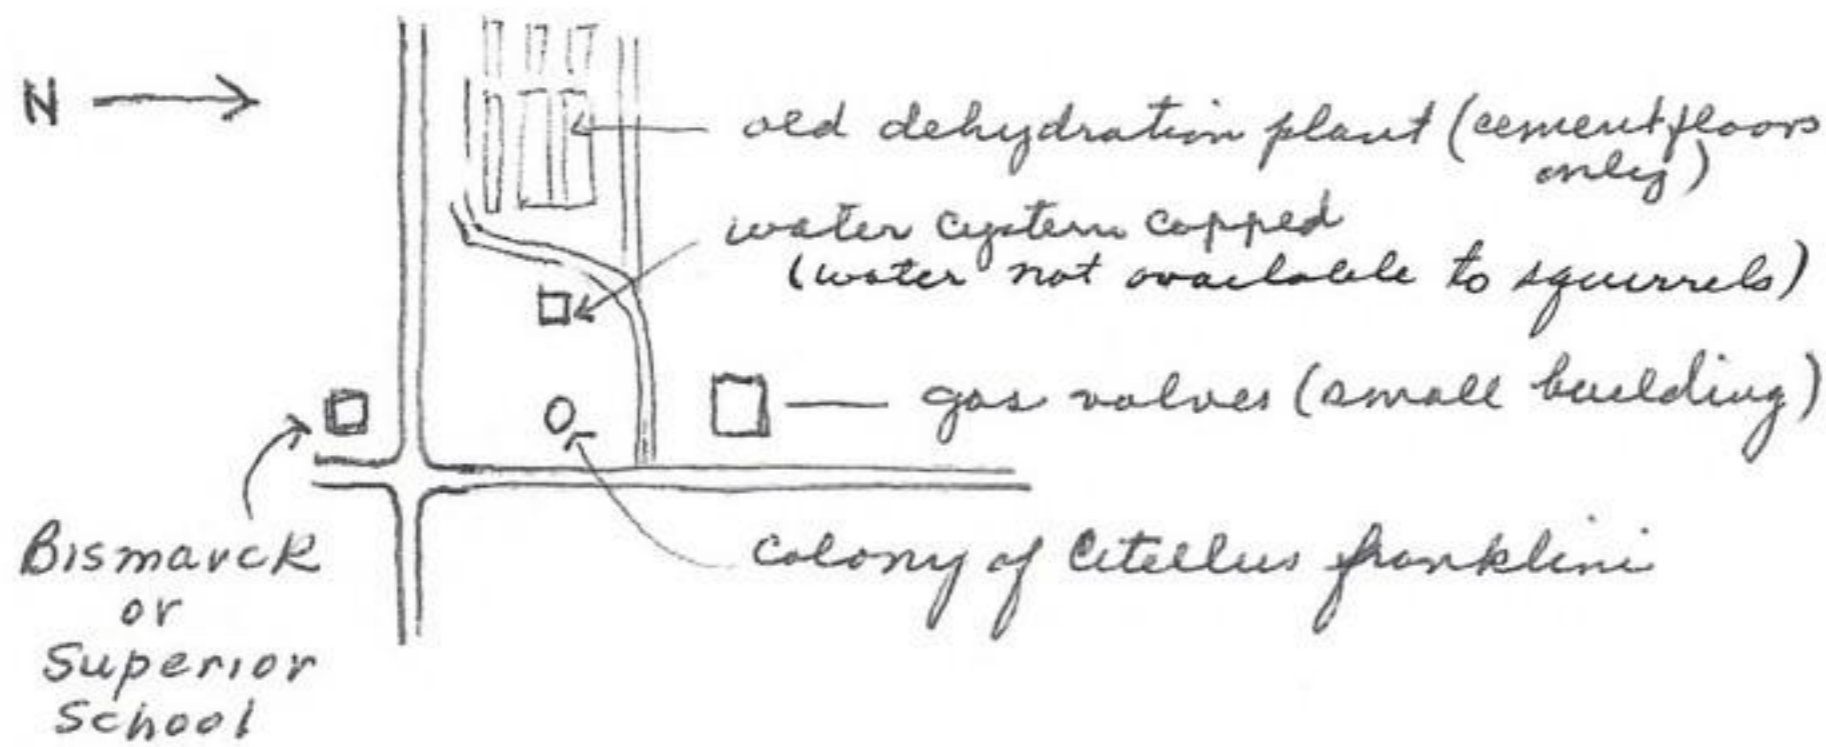 N
old dehydration plant (cement floors
only)
water cystern capped
(water not available to squirrels)
gas valves (small building)
colony of Citellus franklini
Bismarck
or
Superior
School